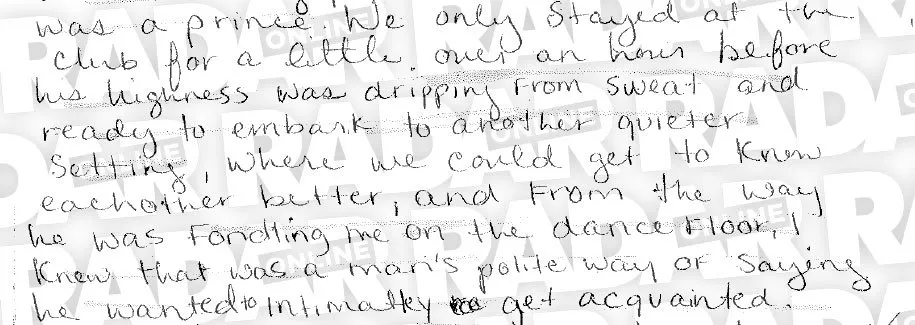 was a prince. We only stayed at the
club for a little over an hour before
his highness was dripping from sweat and
ready to embark to another quieter
setting, where we could get to know
eachother better, and from the way
he was fondling me on the dance floor, I
knew that was a man's polite way of saying
he wanted to intimatley get acquainted.
RADAR ONLINE